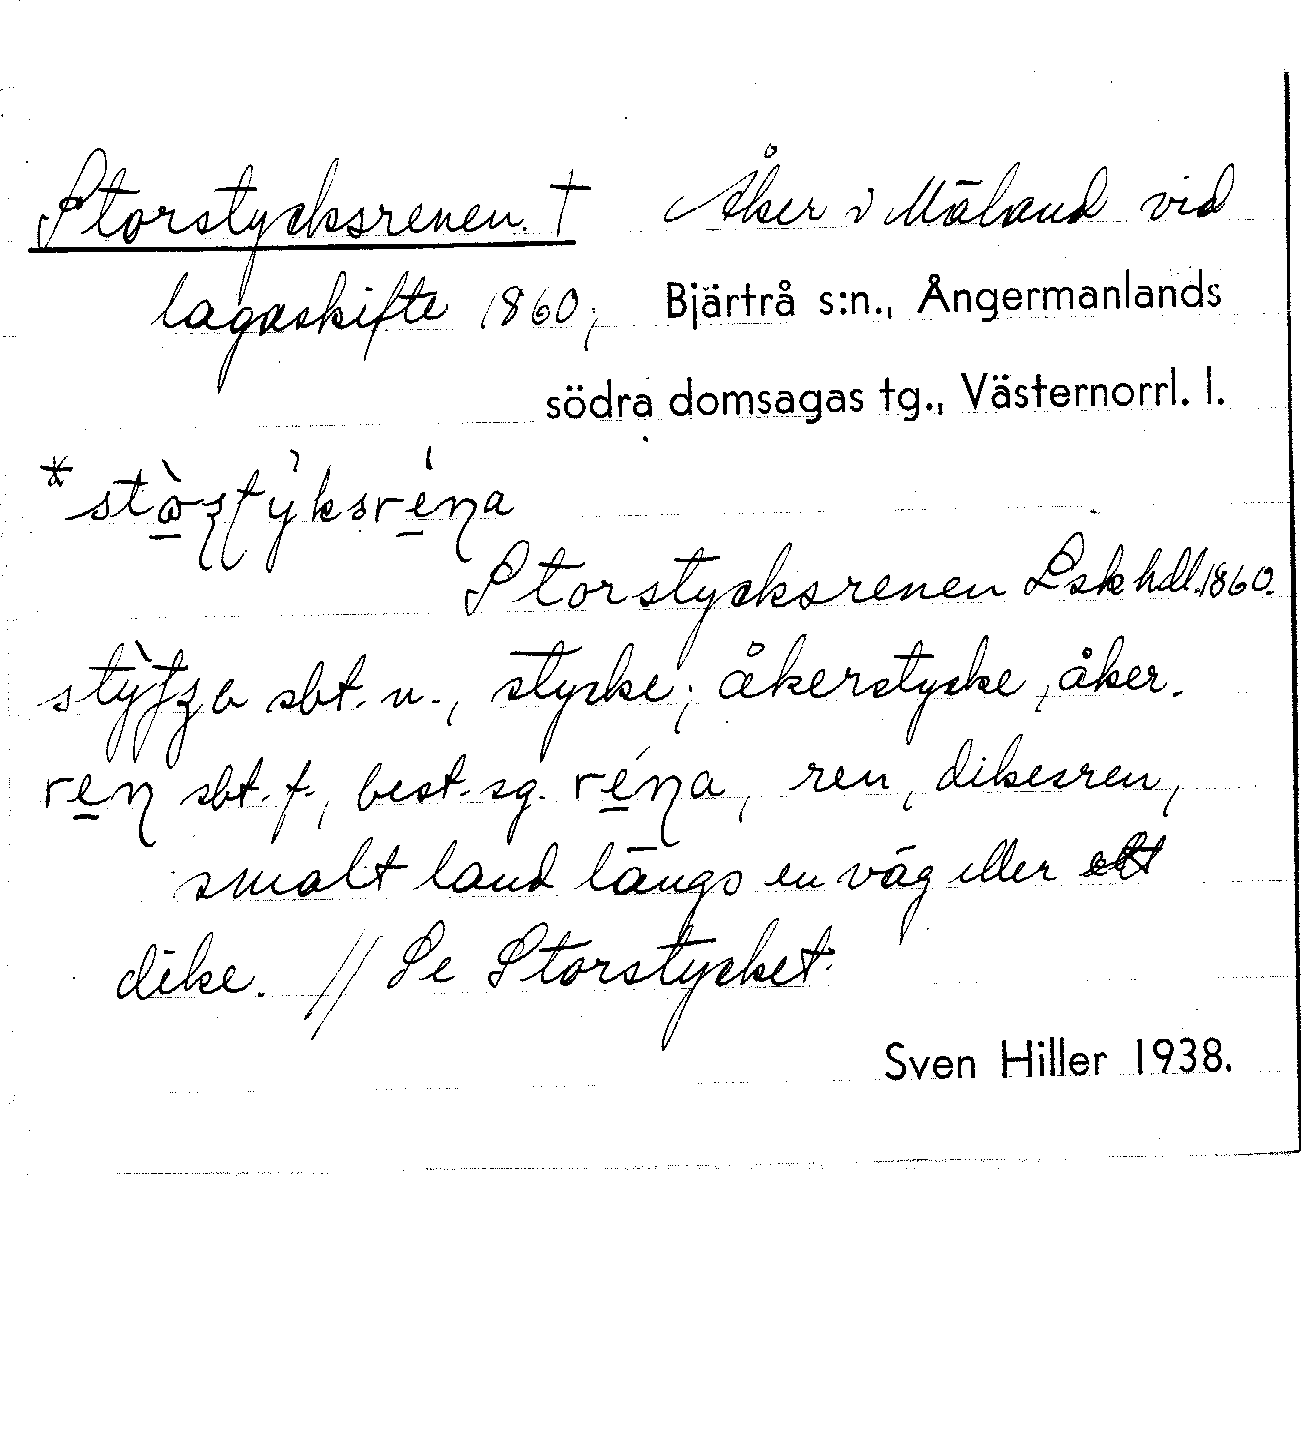 Storstycksrenen. † Åker i Mäland vid
lagaskifte 1860; Bjärtrå s:n., Ångermanlands
södra domsagas tg., Västernorrl. l.
Storstycksrenen Lskhdl. 1860.
sbt. n., stycke; åkerstycke, åker.
sbt. f., best. sg. réṇa, ren, dikesren,
smalt land längs en väg eller ett
dike. // Se Storstycket.
Sven Hiller 1938.